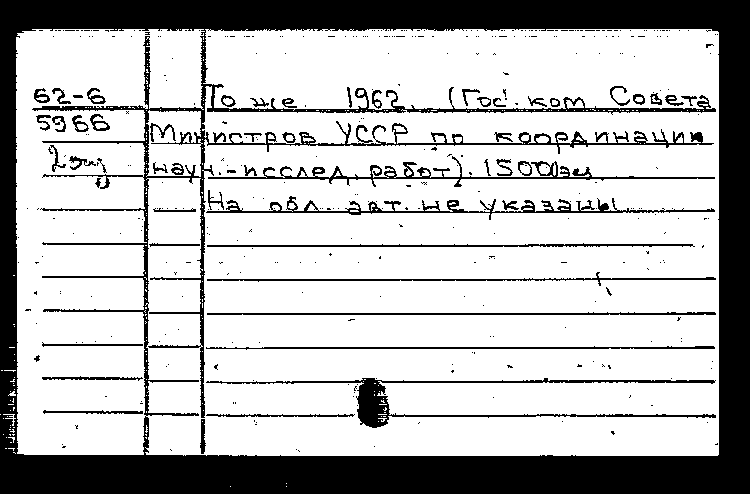 62-6 То же 1962. (Гос. ком Совета
5966 Министров УССР по координации
2 экз науч.-исслед. работ). 1500 экз.
На обл. авт. не указаны